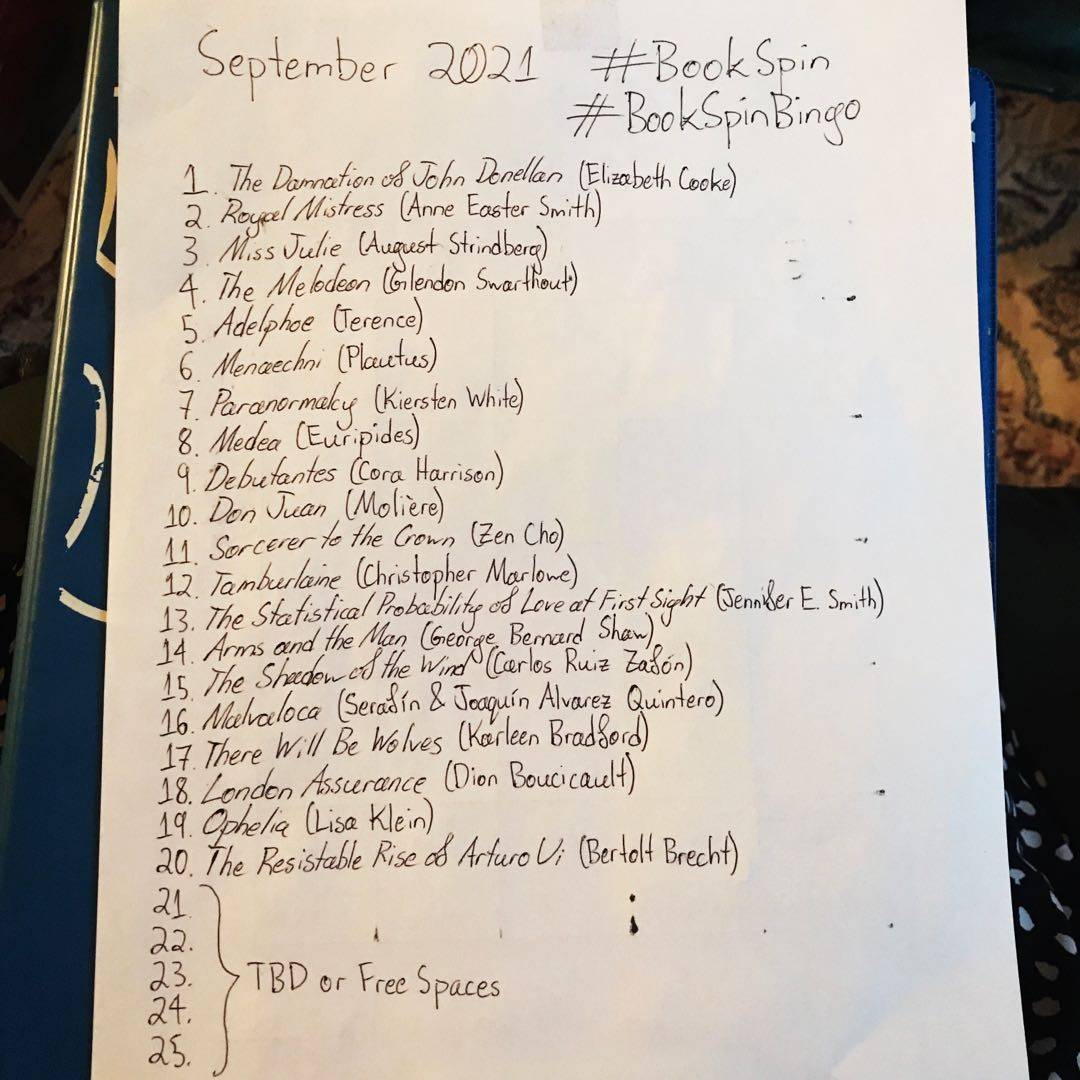 September 2021 #BookSpin
#BookSpinBingo
1. The Damnation of John Donellan (Elizabeth Cooke)
2. Royal Mistress (Anne Easter Smith)
3. Miss Julie (August Strindberg)
4. The Melodeon (Glendon Swarthout)
5. Adelphoe (Terence)
6. Menaechni (Plautus)
7. Paranormalcy (Kiersten White)
8. Medea (Euripides)
9. Debutantes (Cora Harrison)
10. Don Juan (Molière)
11. Sorcerer to the Crown (Zen Cho)
12. Tamburlaine (Christopher Marlowe)
13. The Statistical Probability of Love at First Sight (Jennifer E. Smith)
14. Arms and the Man (George Bernard Shaw)
15. The Shadow of the Wind (Carlos Ruiz Zafón)
16. Malvaloca (Serafín & Joaquín Alvarez Quintero)
17. There Will Be Wolves (Karleen Bradford)
18. London Assurance (Dion Boucicault)
19. Ophelia (Lisa Klein)
20. The Resistable Rise of Arturo Ui (Bertolt Brecht)
21.
22.
23. TBD or Free Spaces
24.
25.